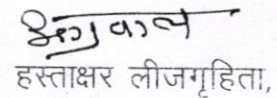 हस्ताक्षर लीजगृहिता,